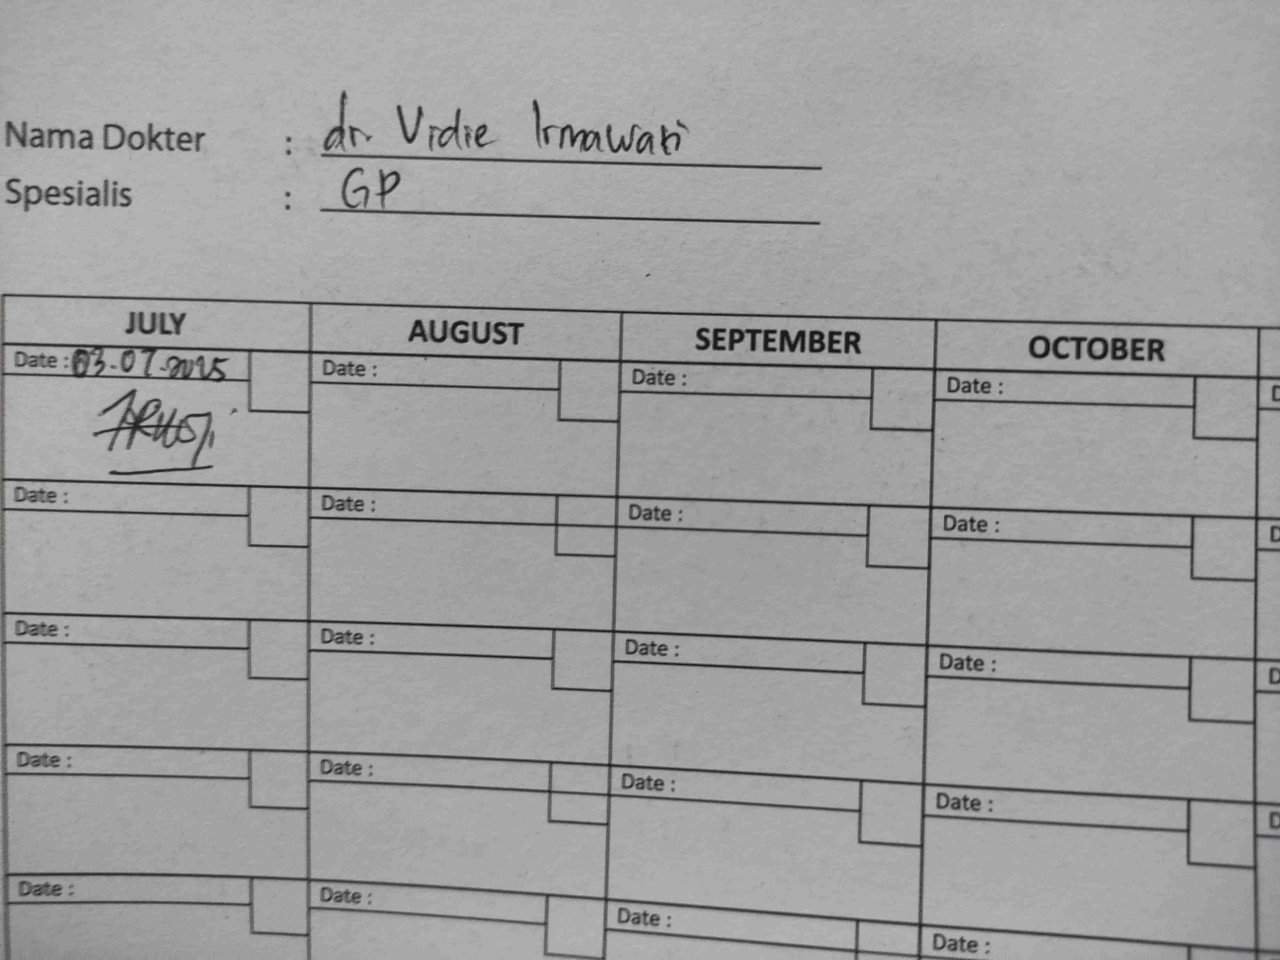 Nama Dokter : dr. Vidie Irmawati
Spesialis : GP
JULY AUGUST SEPTEMBER OCTOBER
Date : 03-07-2025 Date : Date : Date : D
Date : Date : Date : Date : D
Date : Date : Date : Date : D
Date : Date : Date : Date : D
Date : Date : Date : Date :